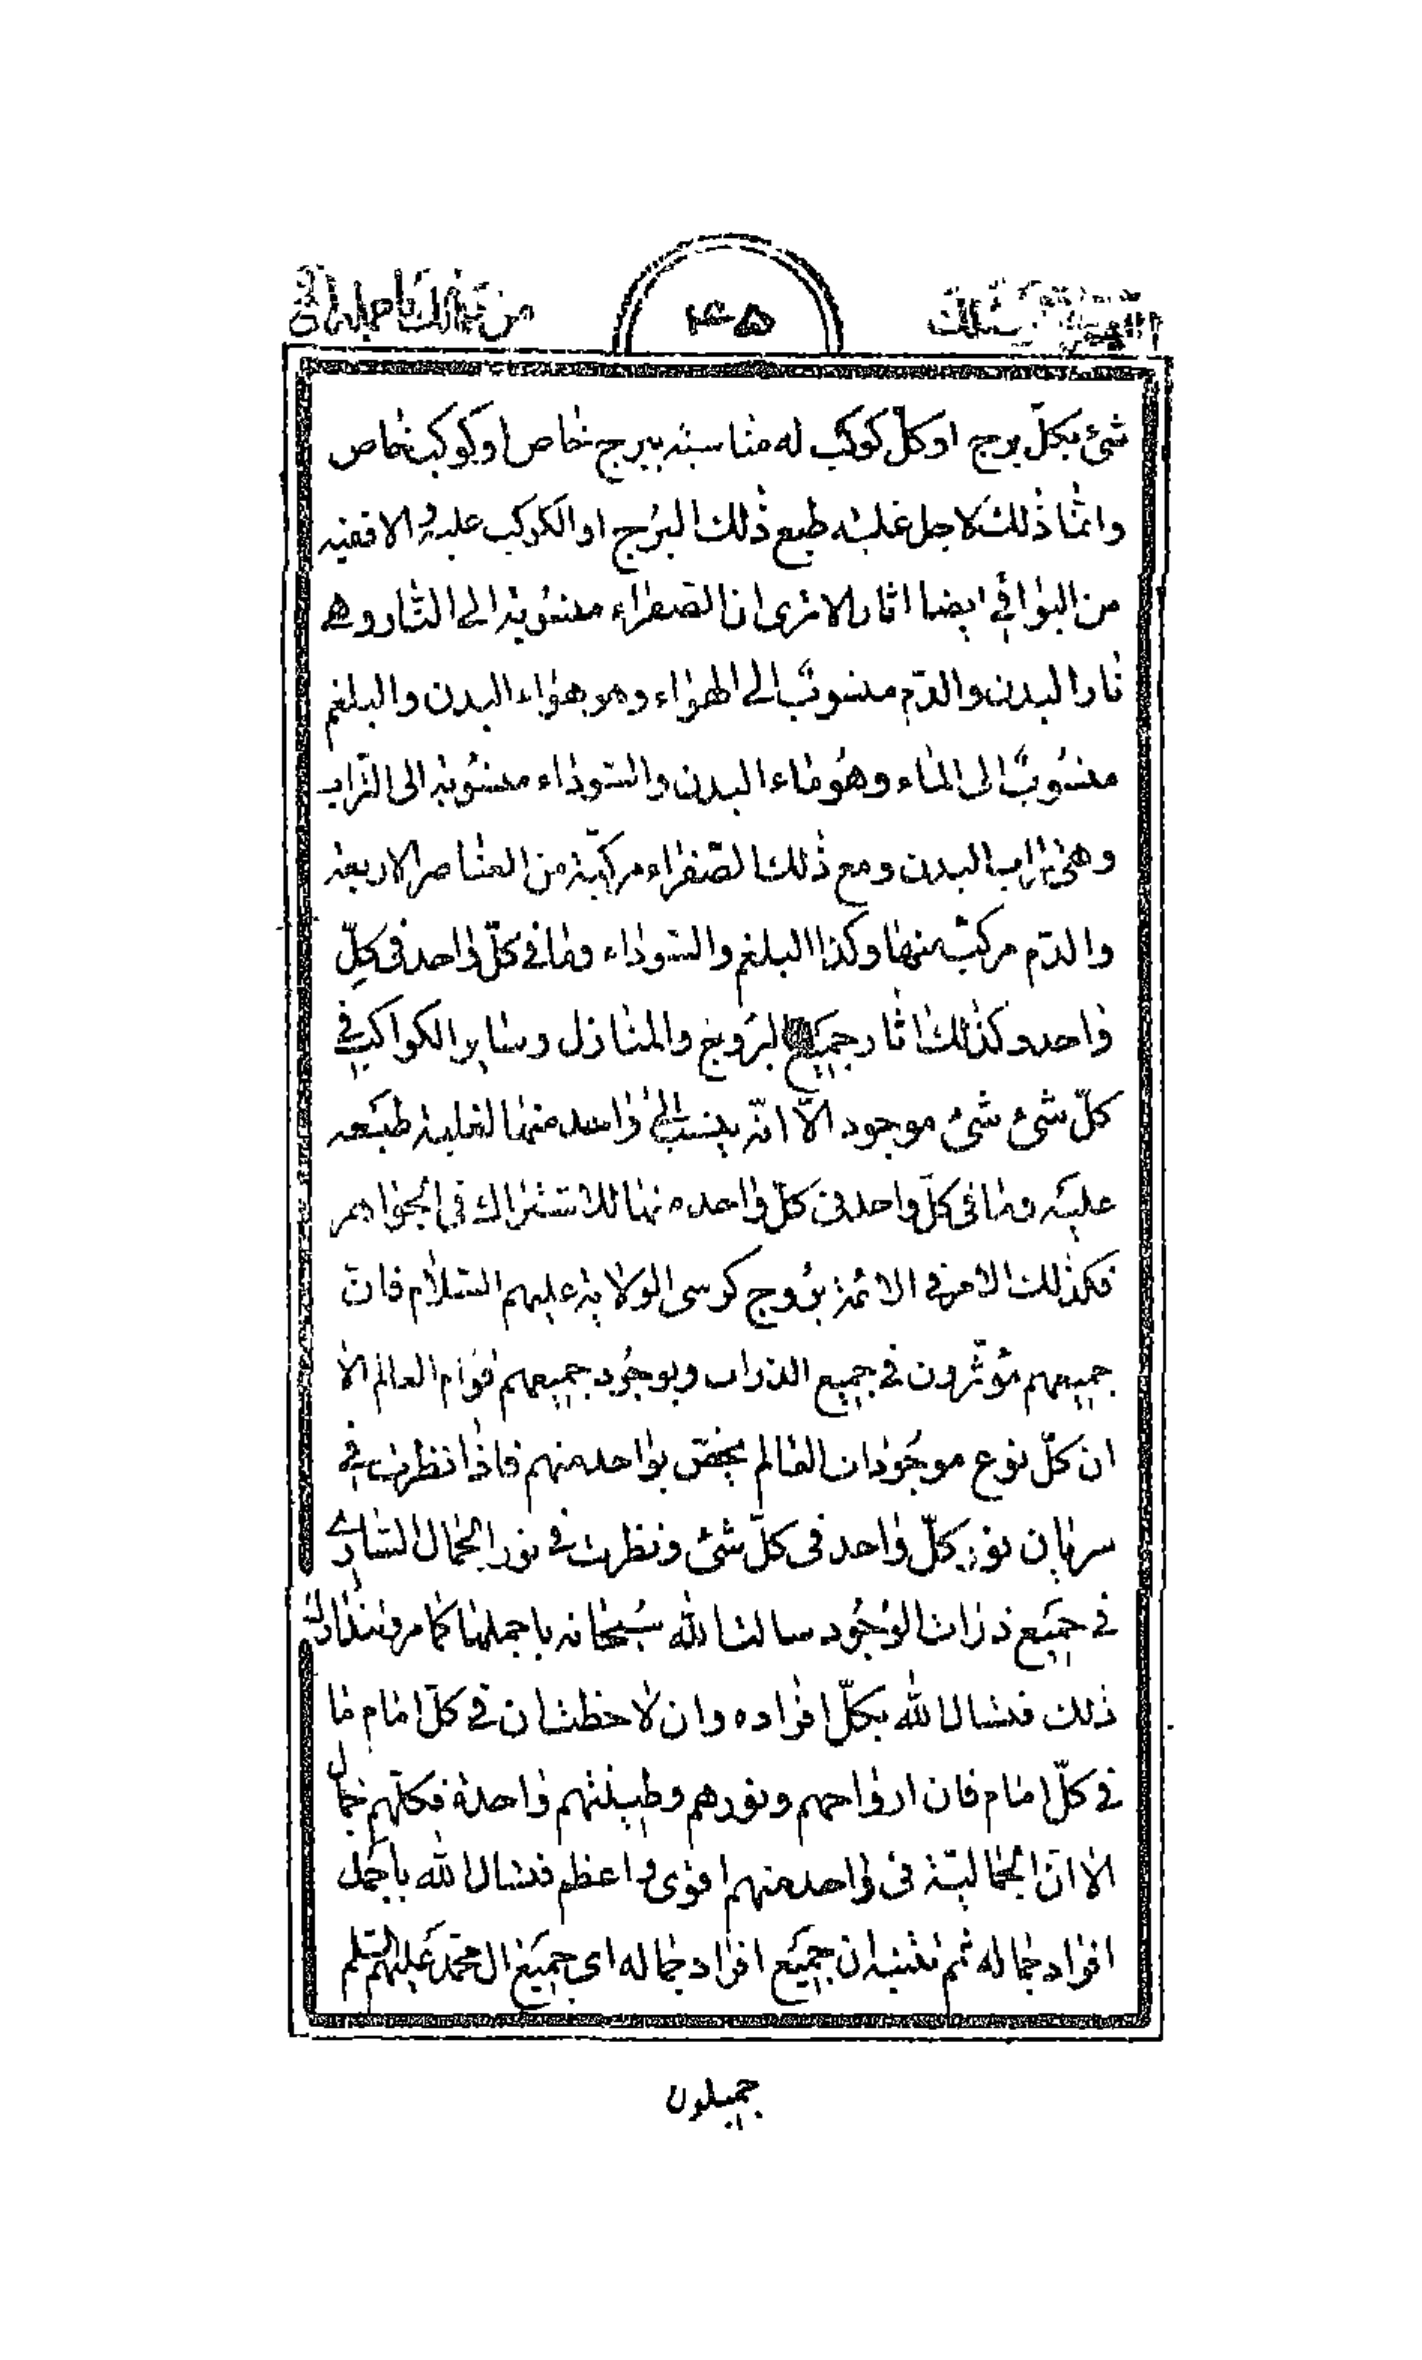 ٤٥
شئ بكلّ برج او كلّ كوكب له مناسبة ببرج خاص او كوكب خاص
وانما ذلك لاجل غلبة طبع ذلك البرج او الكوكب عليه والا ففيه
من البواقي ايضا اثار الا ترى ان الصفراء منسوبة الى النار وهي
نار البدن والدّم منسوب الى الهواء وهو هواء البدن والبلغم
منسوب الى الماء وهو ماء البدن والسّوداء منسوبة الى التراب
وهى تراب البدن ومع ذلك الصّفراء مركبّة من العناصر الاربعة
والدّم مركب منها وكذا البلغم والسّوداء وما في كلّ واحد فى كلّ
واحد وكذلك اثار جميع البروج والمنازل وساير الكواكب في
كلّ شئ شئ موجود الّا انّه ينسب الى واحد منها لغلبة طبعه
عليه وما فى كلّ واحد فى كلّ واحد منها للاشتراك فى الجواهر
فكذلك الامر في الائمة بروج كرسى الولاية عليهم السّلام فانّ
جميعهم مؤثّرون في جميع الذرات وبوجود جميعهم قوام العالم الا
ان كلّ نوع موجودات العالم يختصّ بواحد منهم فاذا نظرت في
سريان نور كلّ واحد فى كلّ شئ ونظرت في نور الجمال السّاري
في جميع ذرات الوجود سالت الله سبحانه باجملها كما مر وتتدارك
ذلك فتسال الله بكلّ افراده وان لاحظت ان في كلّ امام ما
في كلّ امام فان ارواحهم ونورهم وطينتهم واحدة فكلّهم جمال
الا انّ الجماليّة فى واحد منهم اقوى واعظم فتسال الله باجمل
افراد جماله ثم تتنبه ان جميع افراد جماله اى جميع ال محمّد عليهم السّلم
جميلون